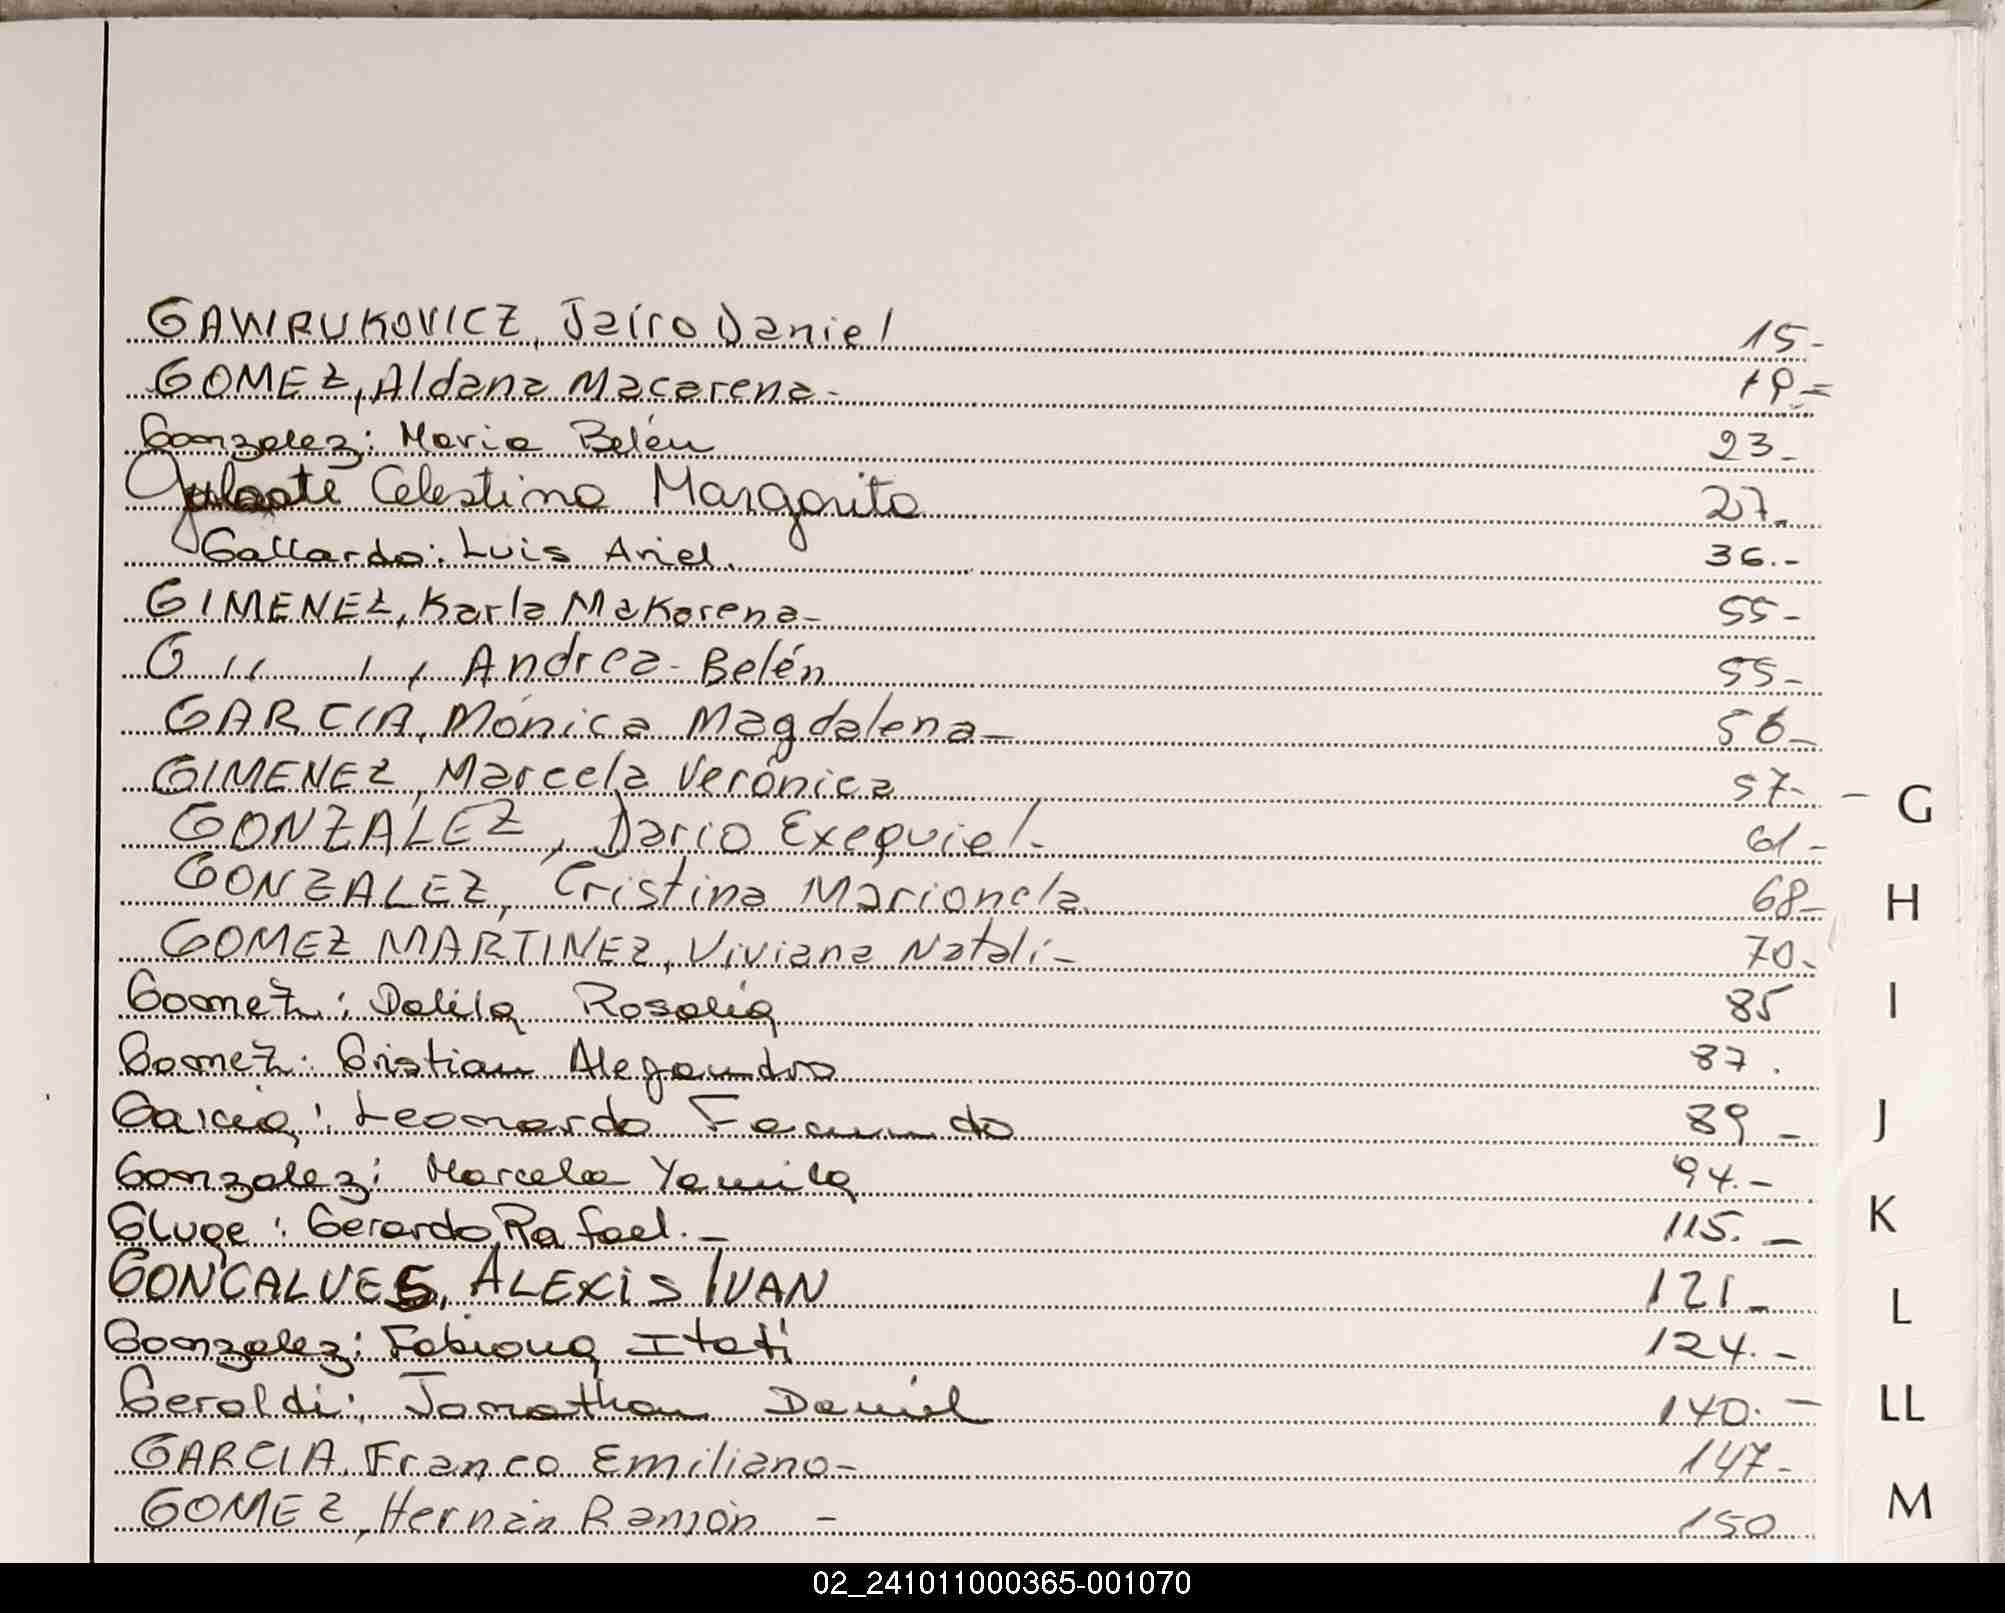 GAWRUKOVICZ, Jairo Daniel 15-
GOMEZ, Aldana Macarena- 19-
Gonzalez: Maria Belén 23-
Celestina Margarita 27-
Gallardo: Luis Ariel. 36.-
GIMENEZ, Karla Makarena- 55-
G '' '' , Andrea Belén 55-
GARCIA, Mónica Magdalena- 56-
GIMENEZ, Marcela Verónica 57-
- G
GONZALEZ, Dario Exequiel- 61-
GONZALEZ, Cristina Marionela. 68-
H
GOMEZ MARTINEZ, Viviana Natalí- 70-
Gomez: Dalila Rosalia 85
I
Gomez: Cristian Alejandro 87.
Garcia: Leonardo Facundo 89-
J
Gonzalez: Marcela Yamila 94.-
Gluge: Gerardo Rafael.- 115.-
K
GONCALVES, ALEXIS IVAN 121-
L
Gonzalez: Fabiana Itati 124.-
Geraldi: Jonathan Daniel 140.-
LL
GARCIA, Franco Emiliano- 147-
GOMEZ, Hernán Ramón - 150
M
02_241011000365-001070